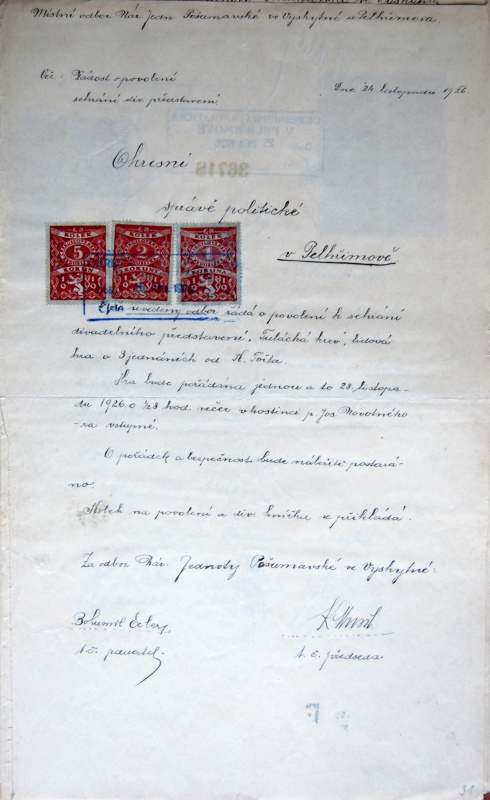 Místní odbor Nár. Jedn. Pošumavské ve Vyskytné u Pelhřimova.
Věc: Žádost o povolení
sehrání div. představení
Dne 24. listopadu 1926.
Okresní
správě politické
v Pelhřimově
ČR ČR ČR
KOLEK KOLEK KOLEK
5
KORUN KORUNY KORUNA
uvedený odbor žádá o povolení k sehrání
divadelního představení „Tulácká krev", lidová
hra o 3 jednáních od K. Fořta.
Hra bude pořádána jednou a to 28. listopa-
du 1926 o ½8 hod. večer v hostinci p. Jos. Novotného
za vstupné.
O pořádek a bezpečnost bude náležitě postará-
no.
Kolek na povolení a div. knížka se přikládá.
Za odbor Nár. Jednoty Pošumavské ve Vyskytné:
Bohumil
t.č. t. č. předseda.
36718
31